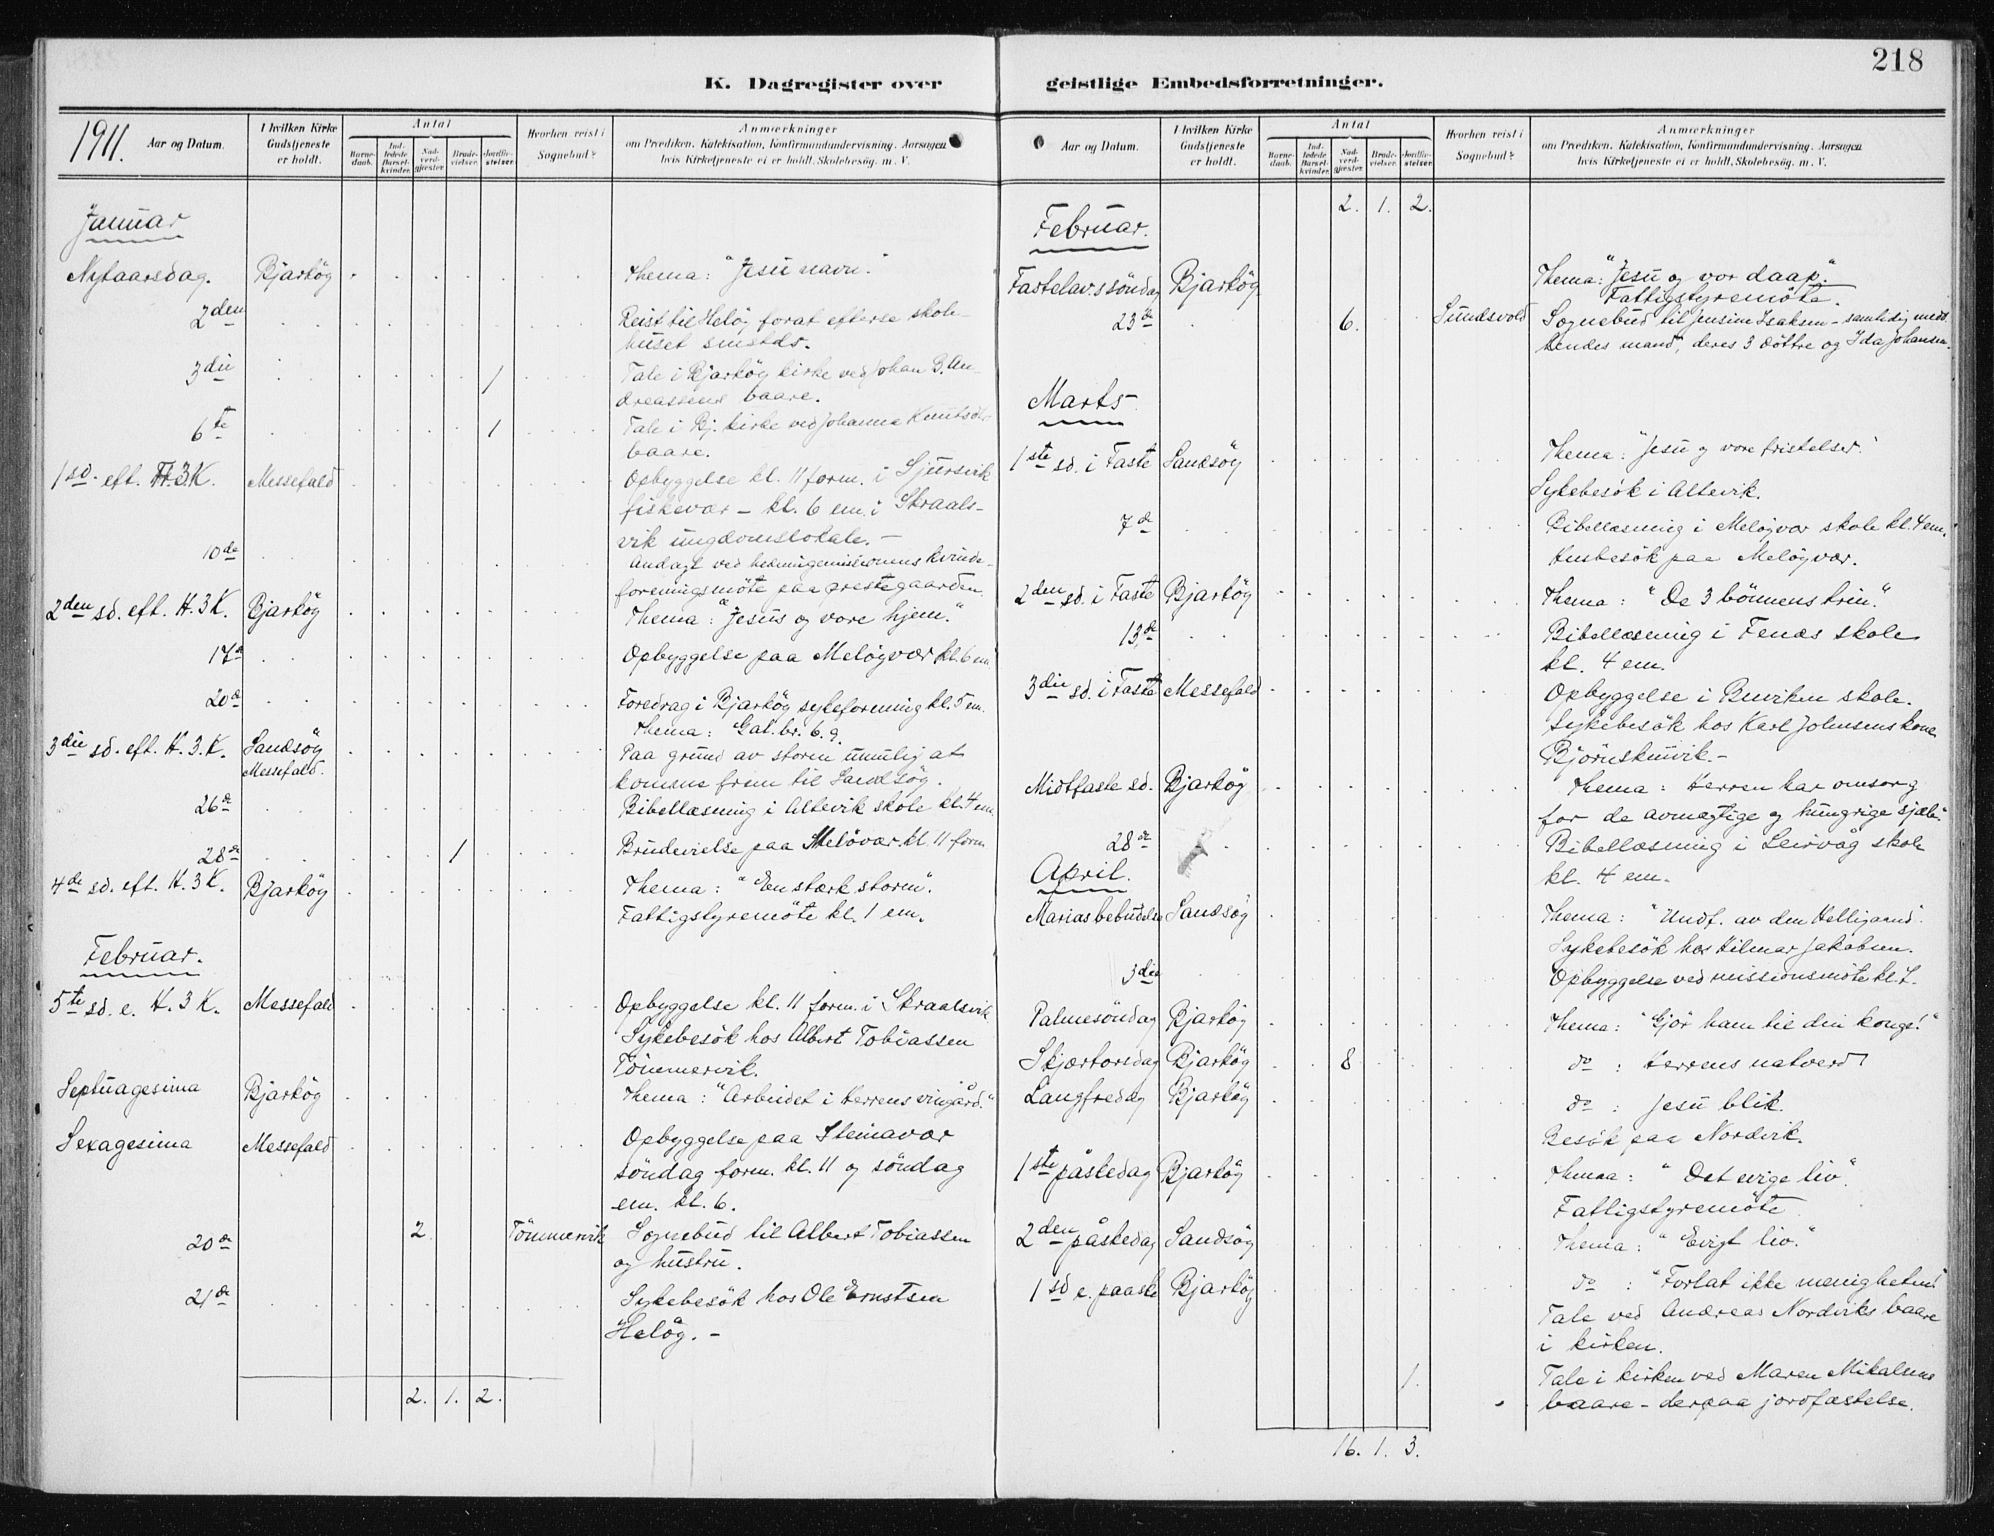 218
K. Dagregister over
1911.
Aar og Datum.
I hvilken Kirke Gudstjeneste er holdt.
Antal
Barne-daab.
Ind-ledede Barsel-kvinder.
Nad-verd-gjæster.
Brude-vielser.
Jordfæ-stelser.
Hvorhen reist i Sognebud?
Anmærkninger
om Prædiken, Katekisation, Konfirmandundervisning. Aarsagen
hvis Kirketjeneste ei er holdt. Skolebesøg. m. V.
Januar
Nytaarsdag. Bjarköy Thema: "Jesu navn".
2den Reist til Helöy forat efterse skole-
huset smstds.
3die 1 Tale i Bjarköy kirke ved Johan B. An-
dreassens baare.
6te 1 Tale i Bj. kirke ved Johanna Knutsdtr
baare.
1 sd. eft. H.3.K. Messefald Opbyggelse kl. 11 form. i Sjursvik
fiskevær – kl. 6 em. i Skraals-
vik ungdomslokale. –
10de Andagt ved hedningemissionens kvinde-
foreningsmöte paa prestegaarden.
2den sd. eft. H.3K. Bjarköy Thema: "Jesus og vore hjem".
17de Opbyggelse paa Melöyvær kl. 6 em.
20de Foredrag i Bjarköy sykeforening kl. 5 em.
Thema: Gal. br. 6. 9.
3die sd. eft. H.3.K. Sandsöy Paa grund av storm umulig at
Messefald. komme frem til Sandsöy.
26de Bibellæsning i Altevik skole kl. 4 em.
28de 1 Brudevielse paa Melövær kl. 11 form
4de sd. eft. H.3K. Bjarköy Thema: "En stærk storm".
Fattigstyremöte kl. 1 em.
Februar.
5te sd. e. H.3K. Messefald Opbyggelse kl. 11 form. i Skraalsvik
Sykebesök hos Albert Tobiassen
Tömmervik.
Septuagesima Bjarköy Thema: "Arbeidet i Herrens vingård."
Sexagesima Messefald Opbyggelse paa Steinavær
söndag form. kl. 11 og söndag
em. kl. 6.
20de 2 Tömmervik Sognebud til Albert Tobiassen
og hustru.
21de Sykebesök hos Ole Ernstsen
Helöy. –
2. 1. 2.
geistlige Embedsforretninger.
Aar og Datum.
I hvilken Kirke Gudstjeneste er holdt.
Antal
Barne-daab.
Ind-ledede Barsel-kvinder.
Nad-verd-gjæster.
Brude-vielser.
Jordfæ-stelser.
Hvorhen reist i Sognebud?
Anmærkninger
om Prædiken, Katekisation, Konfirmandundervisning. Aarsagen
hvis Kirketjeneste ei er holdt. Skolebesög. m. V.
2. 1. 2.
Februar.
Fastelavssöndag Bjarköy Thema: "Jesu og vor daap".
Fattigstyremöte.
23de 6. Sundsvold Sognebud til Jensine Isaksen – samtidig med
hendes mand, deres 3 döttre og Ida Johansen.
Marts
1ste sd. i Faste Sandsöy Thema "Jesu og vore fristelser".
Sykebesök i Altevik.
7de Bibellæsning i Melöyvær skole kl. 4 em.
Husbesök paa Melöyvær.
2den sd. i Faste Bjarköy Thema: "De 3 bönnens trin".
13de Bibellæsning i Fenes skole
kl. 4 em.
3die sd. i Faste Messefald Opbyggelse i skole.
Sykebesök hos Karl Johnsens kone
–
Midtfaste sd. Bjarköy Thema: Herren har omsorg
for de avmægtige og hungrige sjæle".
28de Bibellæsning i Leirvåg skole
kl. 4 em.
April.
Mariæ bebudelse Sandsöy Thema: "Undf. av den Helligaand".
Sykebesök hos Hilmar Jakobsen.
3die Opbyggelse ved missionsmöte kl.
Palmesöndag Bjarköy Thema: "Gjör ham til din konge!"
Skjærtorsdag Bjarköy 8 do : Herrens natverd
Langfredag Bjarköy do : Jesu blik.
Besök paa Nordvik.
1ste påskedag Bjarköy Thema: "Det evige liv".
Fattigstyremöte
2den påskedag Sandsöy Thema: "Evigt liv".
1 sd e. paaske Bjarköy do : "Forlat ikke menigheten!
Tale ved Andreas Nordviks baare
i kirken.
1. Tale i kirken ved Maren Mikalsens
baare – derpaa jordfæstelse.
16. 1. 3.